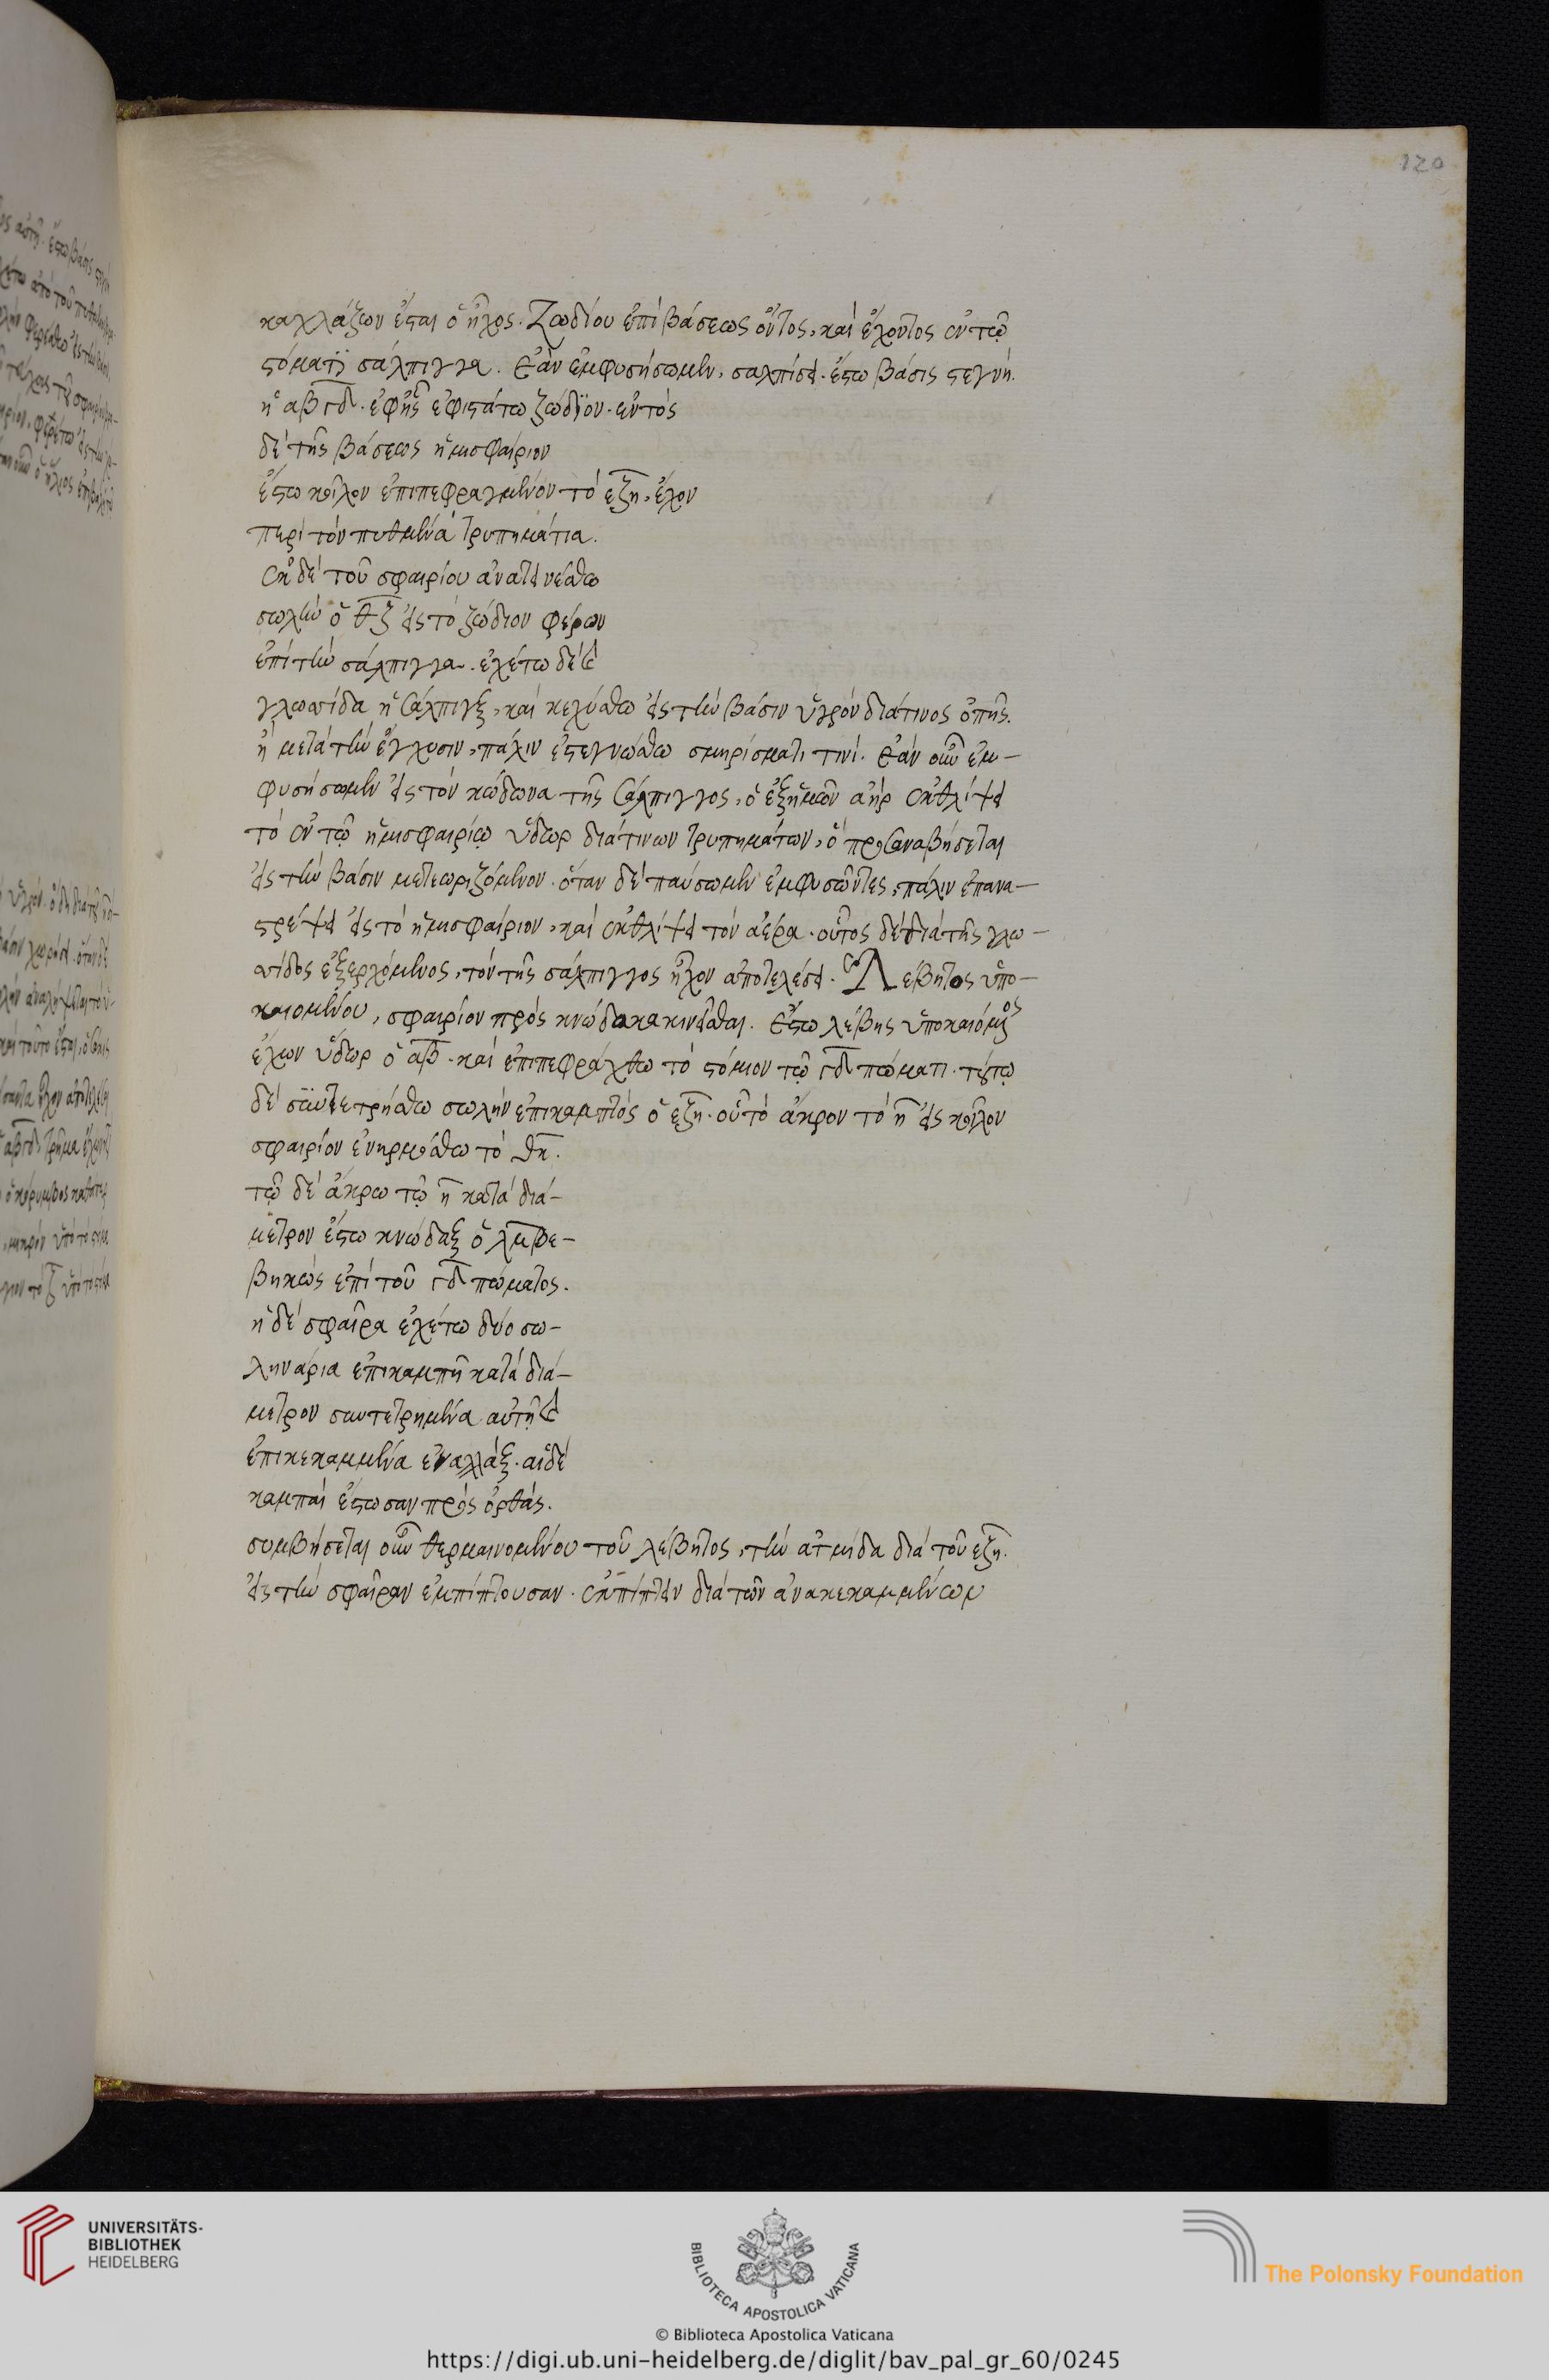 120
καχλάζων ἔσται ὁ ἦχος. Ζωδίου ἐπὶ βάσεως ὄντος, καὶ ἔχοντος ἐν τῷ
στόματϊ σάλπιγγα. ἐὰν ἐμφυσήσωμεν, σαλπίσει. ἔστω βάσις στεγνή.
ἡ αβγδ. ἐφῆς ἐφιστάτω ζώδϊον. ἐντὸς
δὲ τῆς βάσεως ἡμισφαίριον
ἔστω κοῖλον ἐπιπεφραγμένον τὸ εζη, ἔχον
περὶ τὸν πυθμένα τρυπημάτια.
ἐκ δὲ τοῦ σφαιρίου ἀνατεινέσθω
σωλὴν ὁ θζ εἰς τὸ ζώδιον φέρων
ἐπὶ τὴν σάλπιγγα. ἐχέτω δὲ καὶ
γλωσσίδα ἡ σάλπιγξ, καὶ κεχύσθω εἰς τὴν βάσιν ὑγρὸν διάτινος ὀπῆς.
ἣ μετὰ τὴν ἔγχυσιν, πάλιν ἐστεγνώσθω σμηρίσματι τινί. ἐὰν οὖν ἐμ-
φυσήσωμεν εἰς τὸν κώδωνα τῆς σάλπιγγος, ὁ ἐξἡμῶν ἀὴρ ἐκθλίψει
τὸ ἐν τῷ ἡμισφαιρίῳ ὕδωρ διάτινων τρυπημάτων, ὃ προσαναβήσεται
εἰς τὴν βάσιν μετεωριζόμενον. ὅταν δὲ παύσωμεν ἐμφυσῶντες, πάλιν ἐπανα-
στρέψει εἰς τὸ ἡμισφαίριον, καὶ ἐκθλίψει τὸν ἀέρα. οὗτος δὲ διὰ τῆς γλω-
σσίδος ἐξερχόμενος, τὸν τῆς σάλπιγγος ἦχον ἀποτελέσει. Λέβητος ὑπο-
καιομένου, σφαιρίον πρὸς κνώδακα κινεῖσθαι. ἔστω λέβης ὑποκαιόμενος
ἔχων ὕδωρ ὁ αβ. καὶ ἐπιπεφράχθω τὸ στόμιον τῷ γδ πώματι. τούτῳ
δὲ συντετρήσθω σωλὴν ἐπικαμπτὸς ὁ εζη. οὗ τὸ ἄκρον τὸ η εἰς κοῖλον
σφαιρίον ἐνηρμόσθω τὸ θκ.
τῷ δὲ ἄκρω τῷ η κατὰ διά-
μετρον ἔστω κνώδαξ ὁ λμ βε-
βηκὼς ἐπὶ τοῦ γδ πώματος.
ἡ δὲ σφαῖρα ἐχέτω δύο σω-
ληνάρια ἐπικαμπῆ κατὰ διά-
μετρον συντετρημένα αὐτῇ καὶ
ἐπικεκαμμένα ἐναλλάξ. αἱ δὲ
καμπαὶ ἔστωσαν πρὸς ὀρθάς.
συμβήσεται οὖν θερμαινομένου τοῦ λέβητος, τὴν ἀτμίδα διὰ τοῦ εζη.
εἰς τὴν σφαῖραν ἐμπίπτουσαν. ἐκπίπτειν διὰ τῶν ἀνακεκαμμένων
UNIVERSITÄTS-
BIBLIOTHEK
HEIDELBERG
BIBLIOTECA APOSTOLICA VATICANA
The Polonsky Foundation
© Biblioteca Apostolica Vaticana
https://digi.ub.uni-heidelberg.de/diglit/bav_pal_gr_60/0245